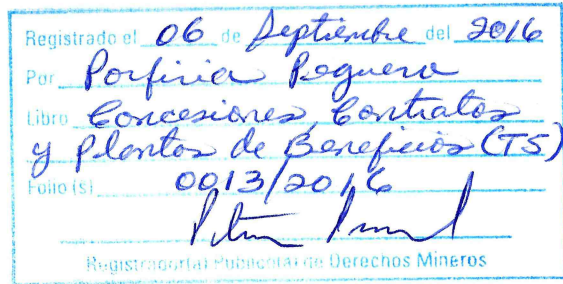 Registrado el 06 de Septiembre del 2016
Por Porfiria Peguero
Libro Concesiones, Contratos
y Plantas de Beneficios (TS)
Folio (s) 0013/2016
Registrador(a) Público(a) de Derechos Mineros